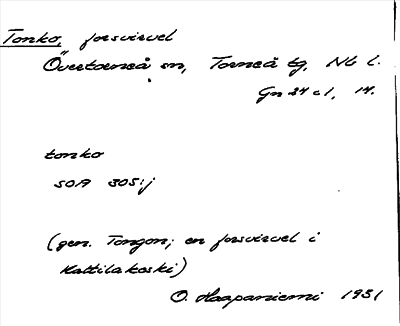 Tonko, forsvirvel
Övertorneå sn, Torneå tg, Nb l.
Gn 34 c 1, 14.
tonko
SOA 305:j
(gen. Tongon; en forsvirvel i
Kattilakoski)
O. Haapaniemi 1931